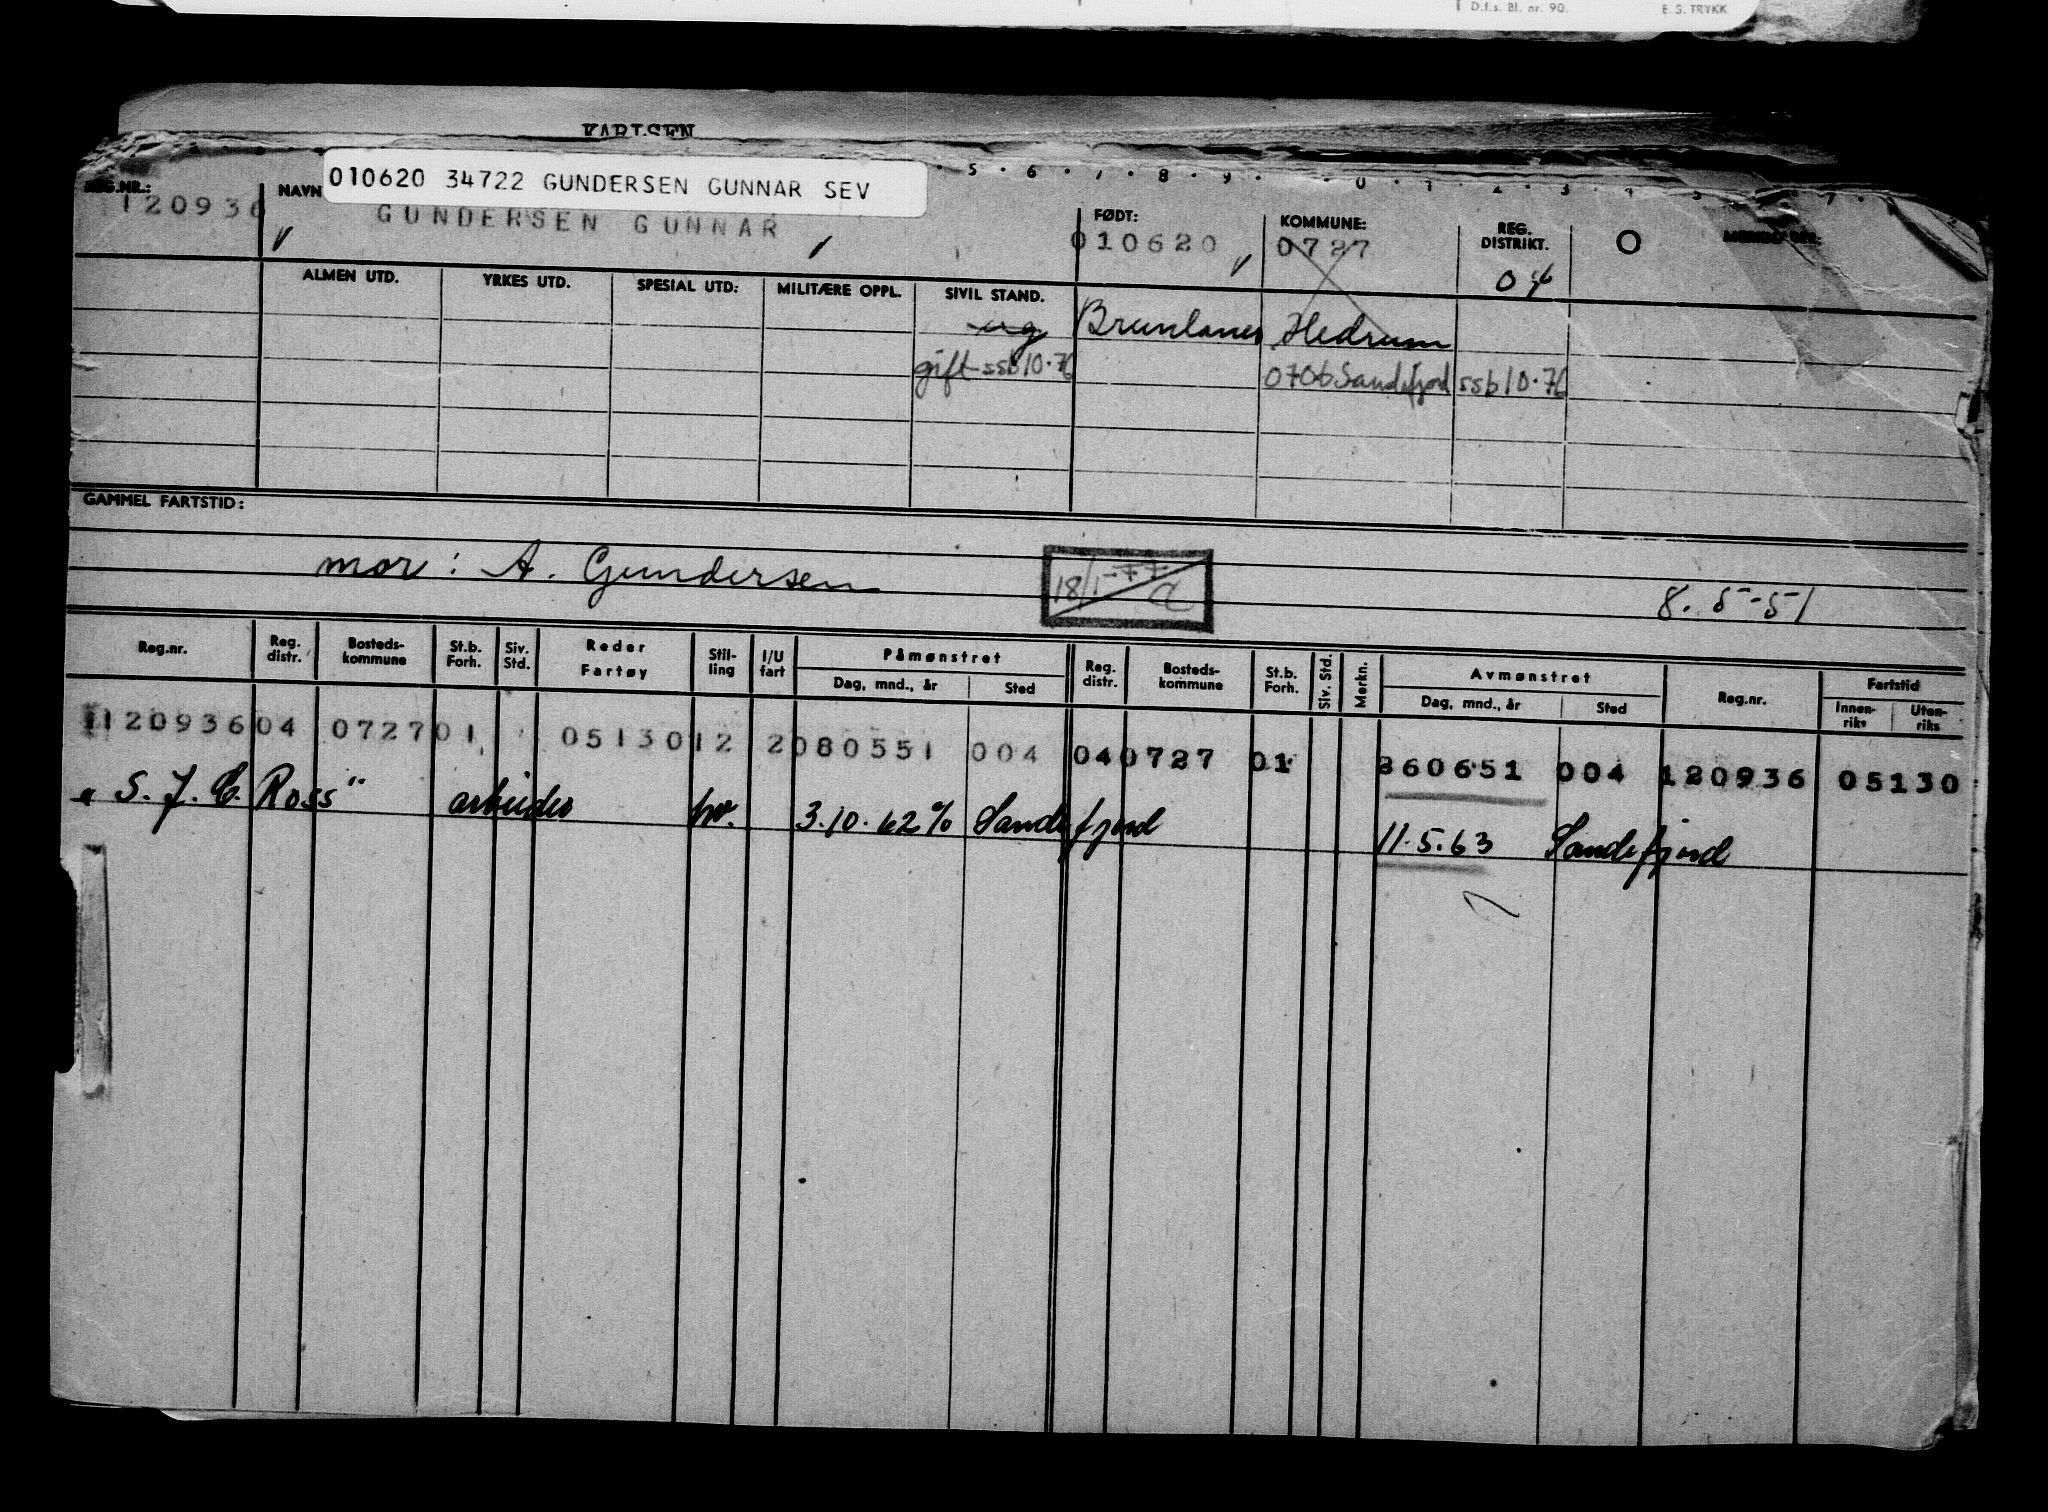 D.f.s. Bl. nr. 90. E. S. TRYKK
KARLSEN
5 . 6 . 7 . 8 . 9 .
010620 34722 GUNDERSEN GUNNAR SEV
REG.NR.: NAVN FØDT: KOMMUNE: REG. DISTRIKT.
120936 GUNDERSEN GUNNAR 010620 0727 04 O
ALMEN UTD. YRKES UTD. SPESIAL UTD: MILITÆRE OPPL. SIVIL STAND.
ug Brunlanes Hedrum
gift ssb 10.76 0706 Sandefjord ssb 10.76
GAMMEL FARTSTID:
mor: A. Gundersen 18/1-77 8.5-51
Reg.nr. Reg. distr. Bosteds-kommune St.b. Forh. Siv. Std. Reder Fartøy Stil-ling I/U fart Påmønstret Dag, mnd., år Sted Reg. distr. Bosteds-kommune St.b. Forh. Siv. Std. Merkn. Avmønstret Dag, mnd., år Sted Reg.nr. Fartstid Innen-riks Uten-riks
120936 04 0727 01 05130 12 2 080551 004 04 0727 01 260651 004 120936 05130
"S. J. E. Ross" arbeider 3.10.62 % Sandefjord 11.5.63 Sandefjord